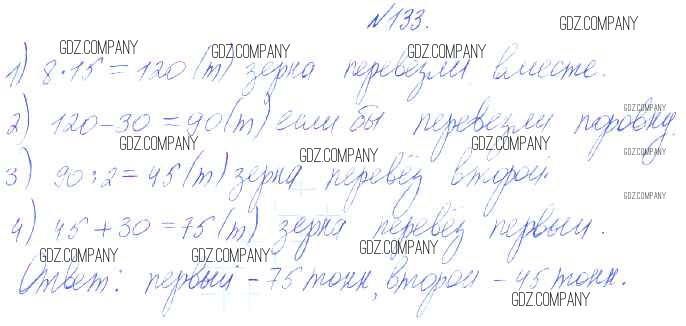 №133.
GDZ.COMPANY
GDZ.COMPANY GDZ.COMPANY GDZ.COMPANY
1) 8·15=120(т) зерна перевезли вместе.
GDZ.COMPANY
2) 120-30=90(т) если бы перевезли поровну.
GDZ.COMPANY GDZ.COMPANY GDZ.COMPANY GDZ.COMPANY
3) 90:2=45(т) зерна перевёз второй.
GDZ.COMPANY
4) 45+30=75(т) зерна перевёз первый.
GDZ.COMPANY GDZ.COMPANY GDZ.COMPANY
Ответ: первый - 75 тонн, второй - 45 тонн.
GDZ.COMPANY